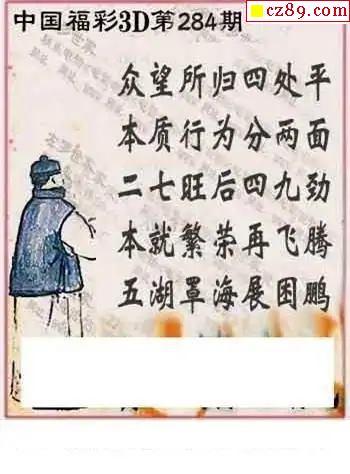 cz89.com
中国福彩3D第284期
众望所归四处平
本质行为分两面
二七旺后四九劲
本就繁荣再飞腾
五湖罩海展困鹏